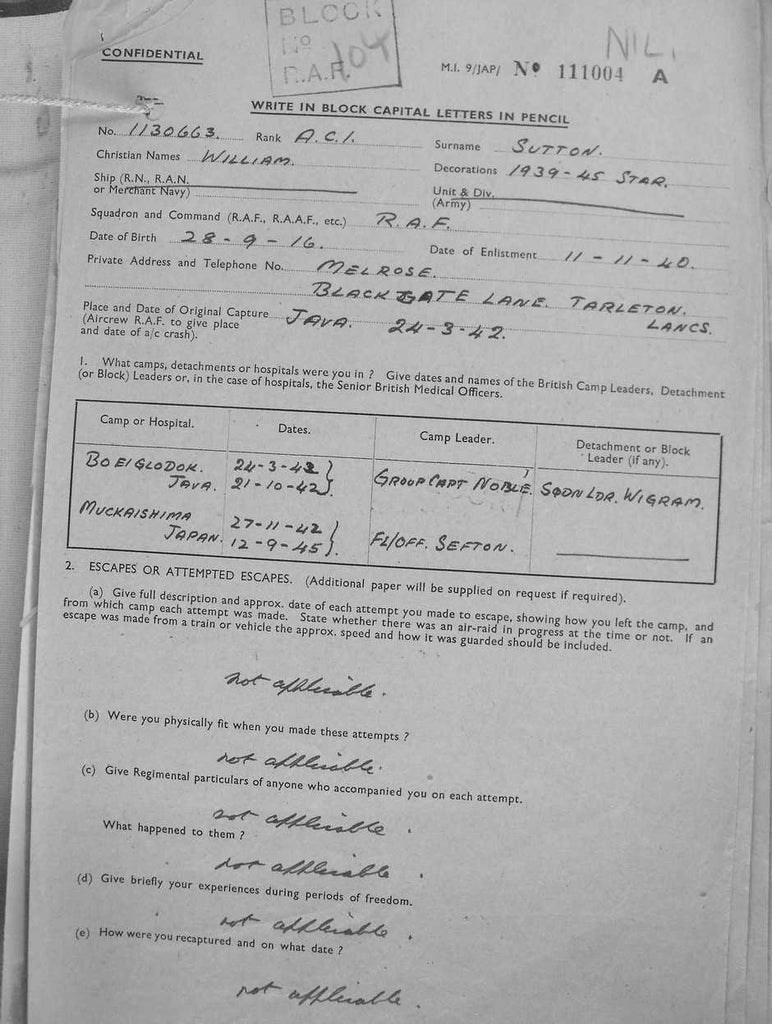 BLOCK
No 104
R.A.F.
NIL.
CONFIDENTIAL
M.I. 9/JAP/ No 111004 A
WRITE IN BLOCK CAPITAL LETTERS IN PENCIL
No. 1130663. Rank A.C.1. Surname SUTTON.
Christian Names WILLIAM. Decorations 1939-45 STAR.
Ship (R.N., R.A.N. or Merchant Navy) Unit & Div. (Army)
Squadron and Command (R.A.F., R.A.A.F., etc.) R.A.F.
Date of Birth 28-9-16. Date of Enlistment 11-11-40.
Private Address and Telephone No. MELROSE.
BLACKGATE LANE. TARLETON.
LANCS.
Place and Date of Original Capture JAVA. 24-3-42.
(Aircrew R.A.F. to give place
and date of a/c crash).
1. What camps, detachments or hospitals were you in ? Give dates and names of the British Camp Leaders, Detachment
(or Block) Leaders or, in the case of hospitals, the Senior British Medical Officers.
Camp or Hospital. Dates. Camp Leader. Detachment or Block Leader (if any).
BOEIGLODOK. 24-3-42 } GROUP CAPT NOBLE. SQDN LDR. WIGRAM.
JAVA. 21-10-42 }.
MUCKAISHIMA 27-11-42 } FL/OFF. SEFTON.
JAPAN. 12-9-45 }.
2. ESCAPES OR ATTEMPTED ESCAPES. (Additional paper will be supplied on request if required).
(a) Give full description and approx. date of each attempt you made to escape, showing how you left the camp, and
from which camp each attempt was made. State whether there was an air-raid in progress at the time or not. If an
escape was made from a train or vehicle the approx. speed and how it was guarded should be included.
not applicable.
(b) Were you physically fit when you made these attempts ?
not applicable.
(c) Give Regimental particulars of anyone who accompanied you on each attempt.
not applicable.
What happened to them ?
not applicable.
(d) Give briefly your experiences during periods of freedom.
not applicable.
(e) How were you recaptured and on what date ?
not applicable.